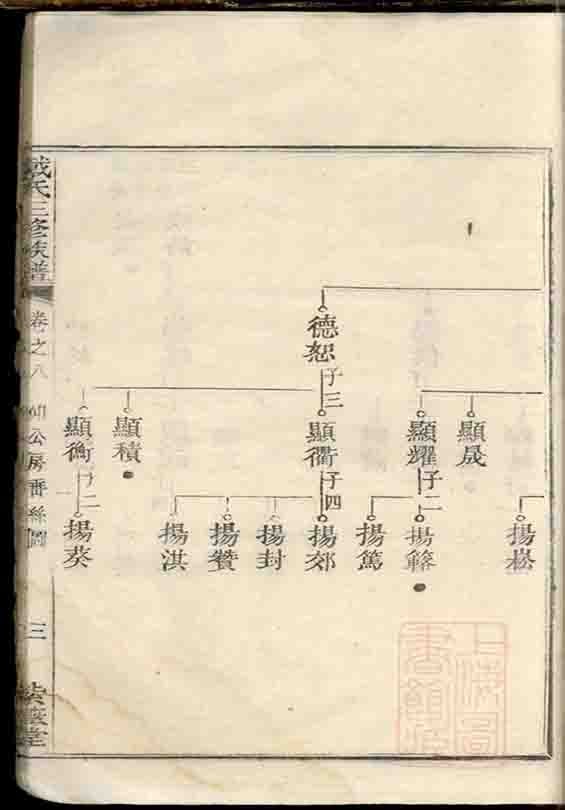 德恕
子三
顯晟
顯耀
子二
顯衢
子四
顯積
顯衡
子二
揚崧
揚簵
揚篤
揚郊
揚封
揚贊
揚淇
揚葵
氏三修族譜
卷之八
公房垂絲圖
三
上海圖書館藏